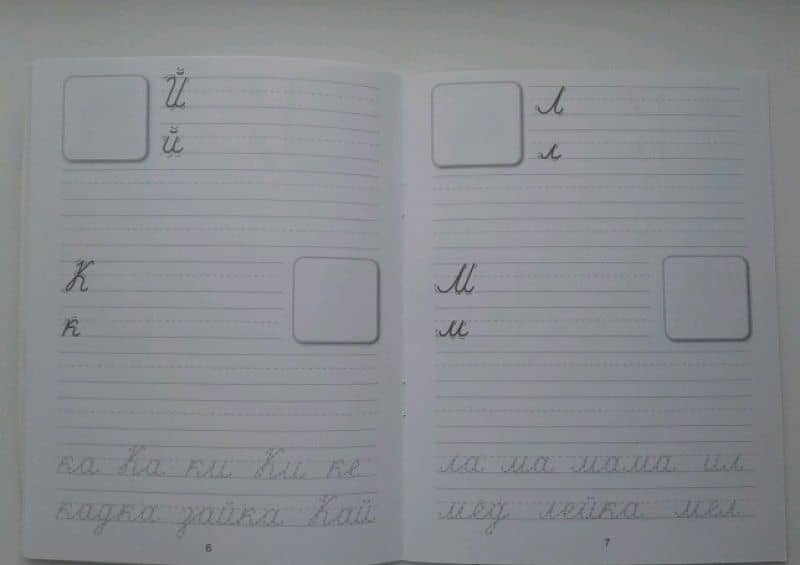 Й
й
К
к
ка Ка ки Ки ке
кадка зайка Кай
6
Л
л
М
м
ла ма мама ил
мёд лейка мел
7